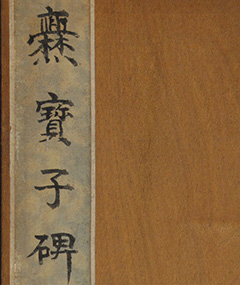 爨寶子碑